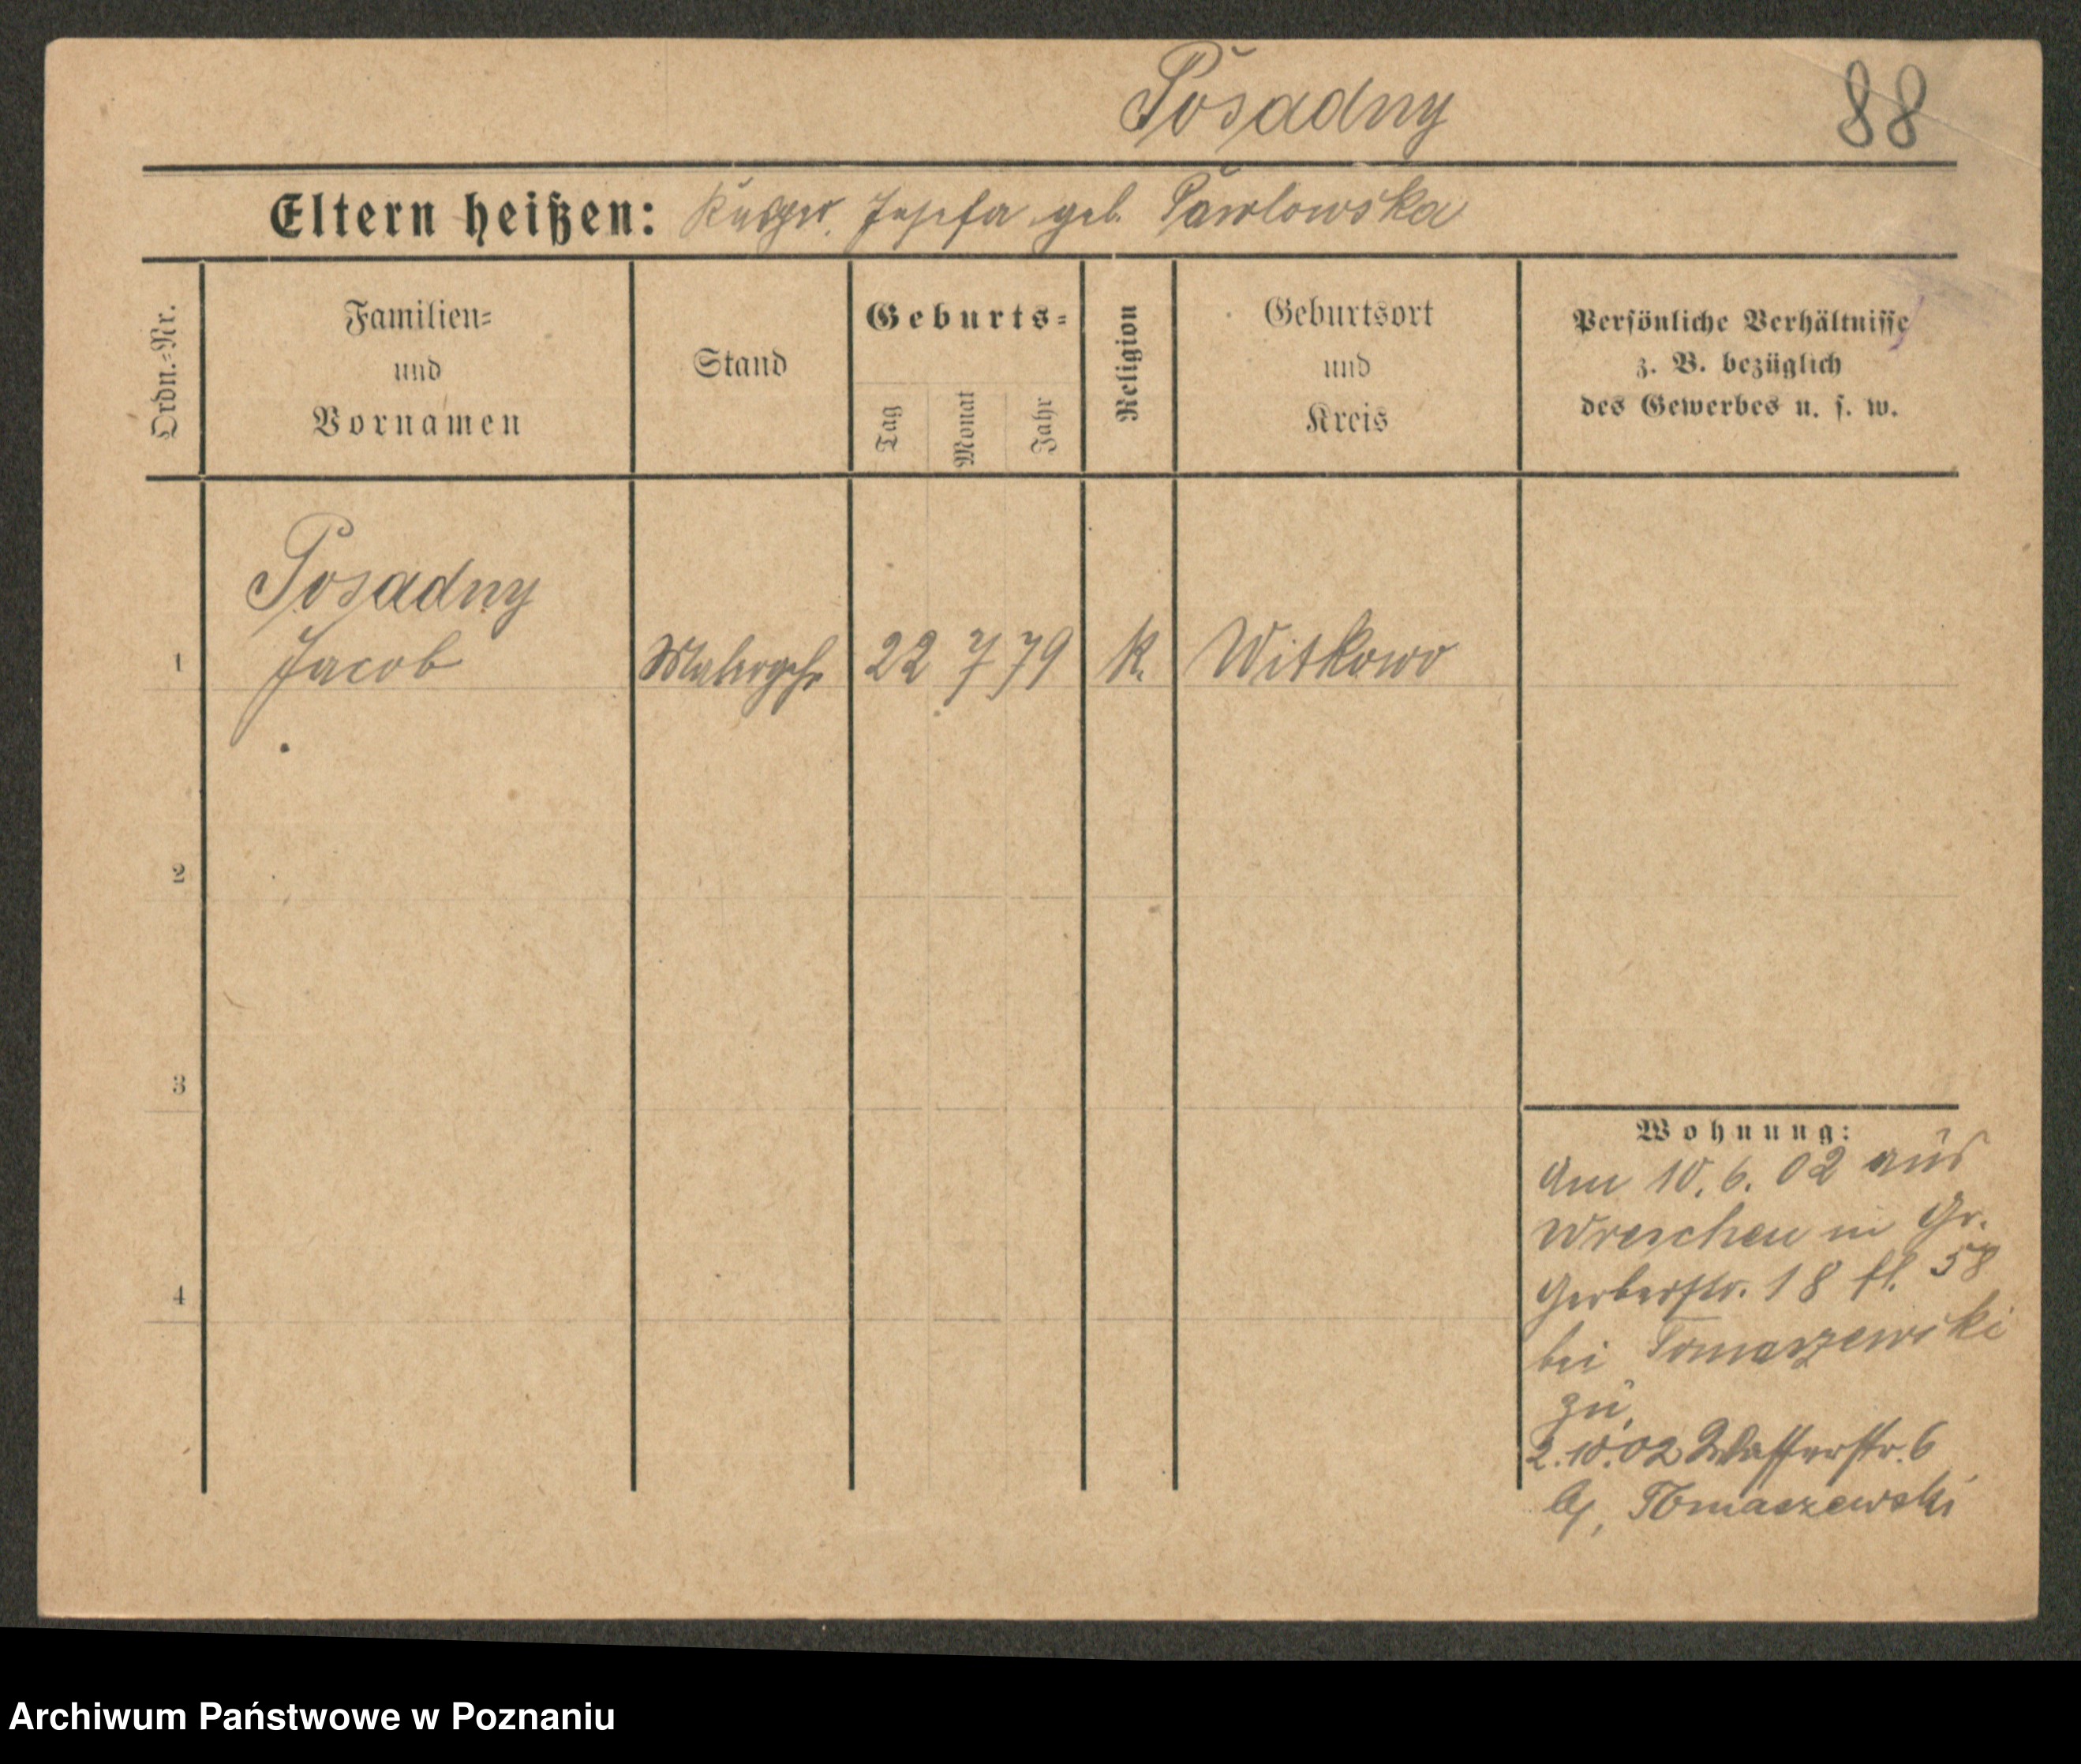 Posadny
88
Eltern heißen: Kasper, Josefa geb. Pawlowska
Ordn.=Nr.
Familien=
und
Vornamen
Stand
Geburts=
Tag
Monat
Jahr
Religion
Geburtsort
und
Kreis
Persönliche Verhältnisse
z. B. bezüglich
des Gewerbes u. s. w.
Posadny
1 Jacob Malergeh. 22 7 79 k. Witkowo
2
3
4
Wohnung:
Am 10. 6. 02 aus
Wreschen in Gr.
Gerberstr. 18 fl. 58
bei Tomaszewski
zu.
2.10.02 Wasserstr. 6
Tomaszewski
Archiwum Państwowe w Poznaniu